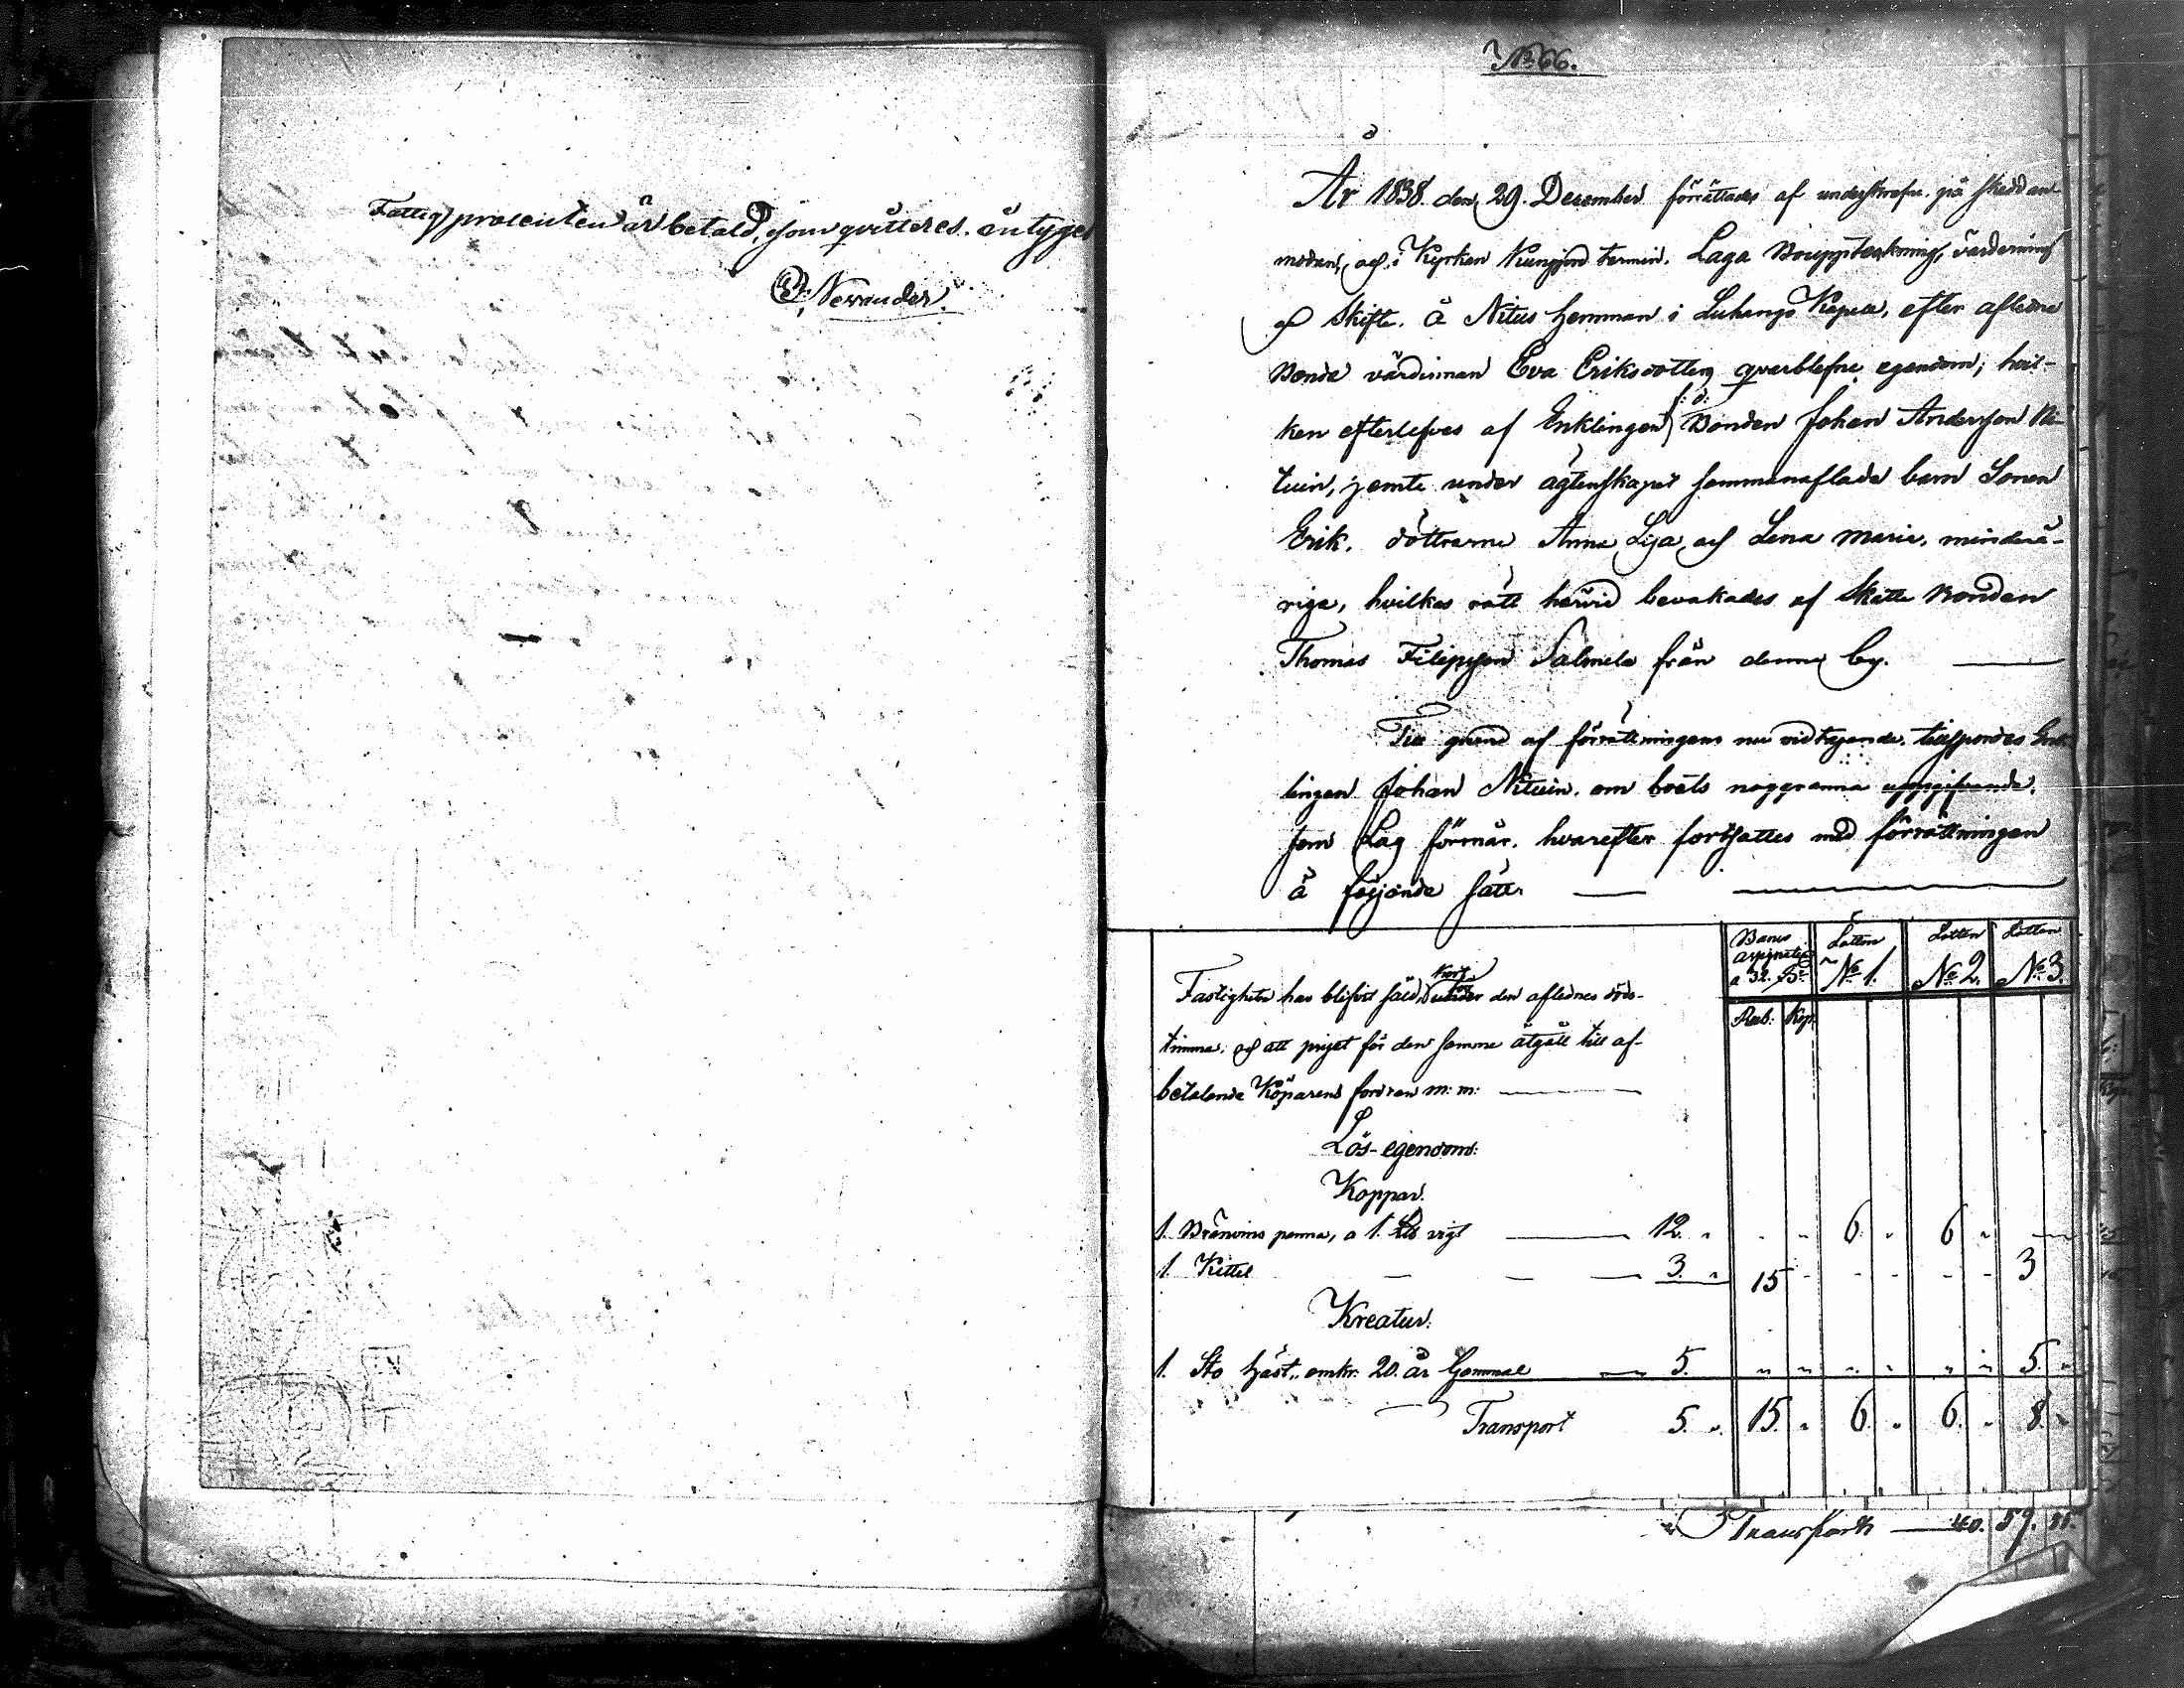 Fattigprocenten är betald, som qvitteres. intyges
Nevander.
No 66.
År 1838 den 29. December förrättades af underskrefne på skedd an-
modan, och i Kyrkan Kungjord termin. Laga Bouppteckning, värdering
och Skifte. å Nitus hemman i Luhango Kapell, efter aflidne
Bonde värdinnan Eva Eriksdotters qvarblefne egendom; hvil-
ken efterlefves af Enklingen Bonden Johan Andersson Ni-
tuin, jemte under ägtenskapet sammanaflade barn Sonen
Erik. döttrarne Anna Lisa, och Lena Maria. minderå-
riga, hvilkas rätt härvid bevakades af Skatte Bonden
Thomas Filipsson Salmela från denna by.
Till grund af förrättningens nu vidtagande. tillspordes Enk-
lingen Johan Nituin. om boets noggranna uppgifvande.
som Lag förmår. hvarefter fortsattes med förrättningen
å följande sätt.
Banco Assignationer a 32. Lotten No 1. Lotten No 2. Lotten No 3.
Rub. Kop.
Fastigheten har blifvit såld, kort under den aflidnes döds-
timma. och att priset för den samma åtgått till af-
betalande Köparens fordran m: m:
Lös-egendom:
Koppar.
1. Bränvins panna, a 1. Lb vigt 12. " " " 6. " 6 "
1. Kittel 3. " 15 - - - - - 3
Kreatur.
1. Sto häst. omkr. 20. år Gammal 5. " " " " " " 5. "
Transport 5. " 15. " 6. " 6. " 8. "
Transport 40. 57. 55.